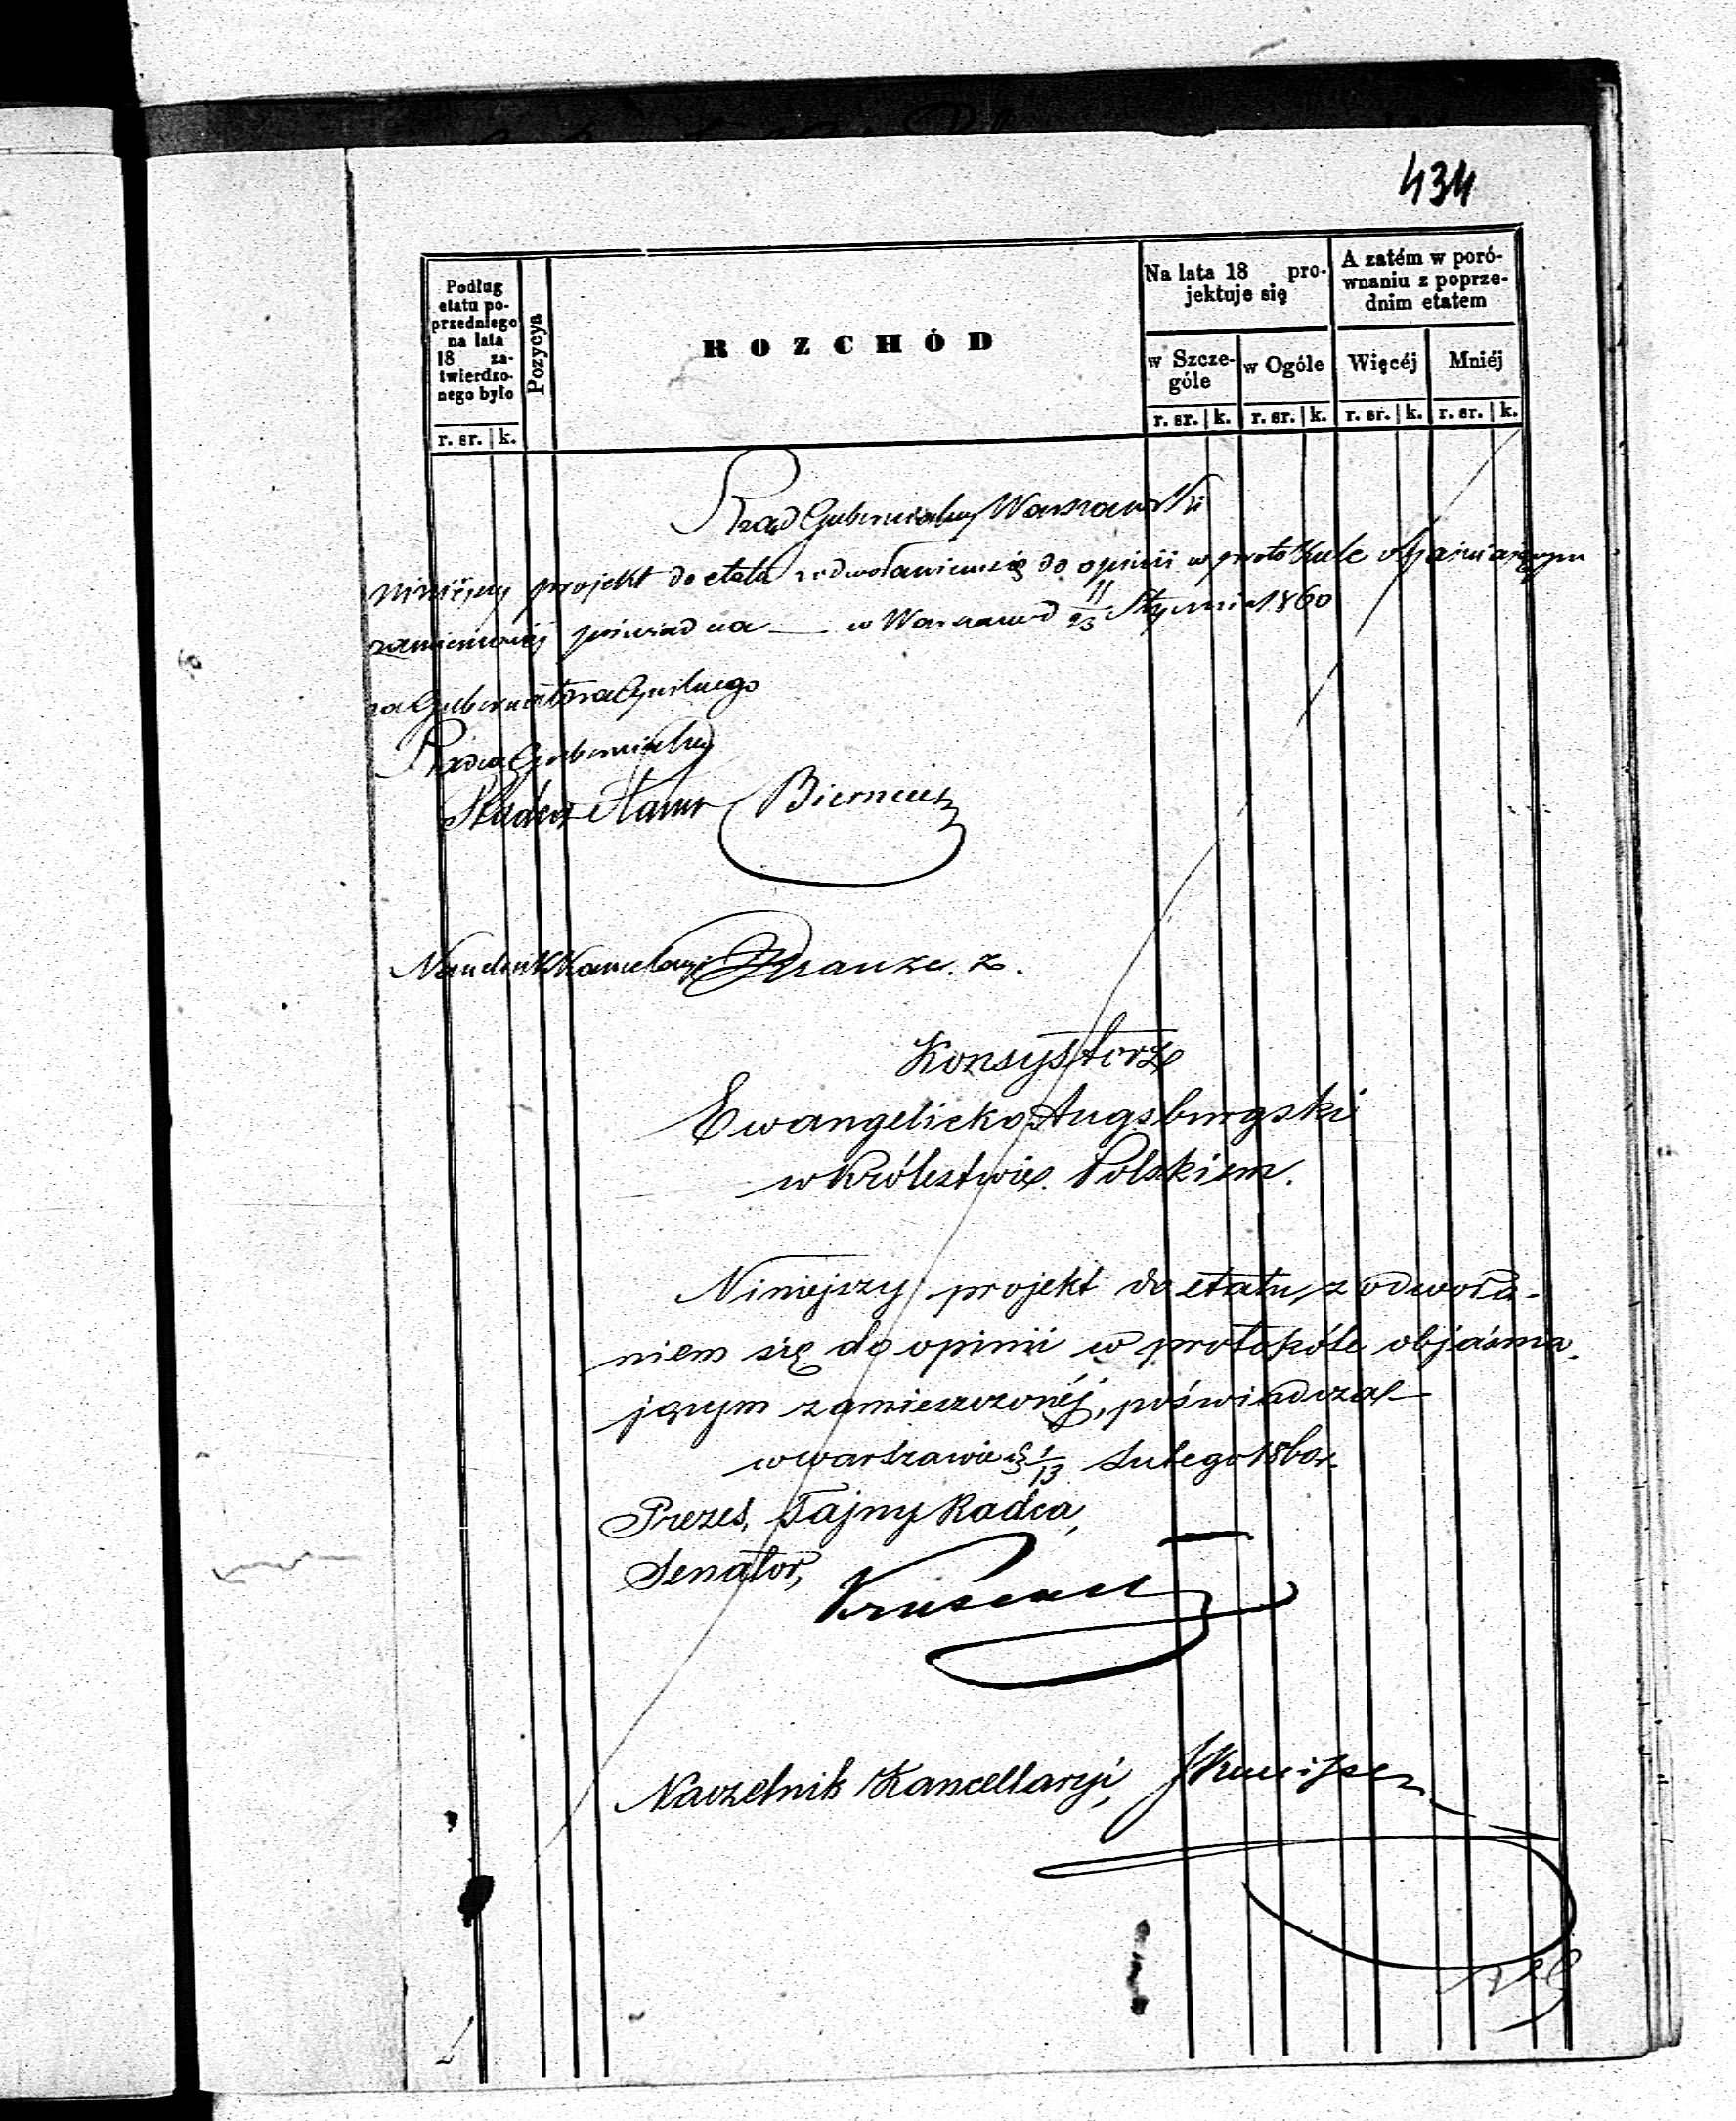 434
Podług
etatu po-
przedniego
na lata
18 za-
twierdzo-
nego było
r. sr. k.
Pozycya
ROZCHÓD
Na lata 18 pro-
jektuje się
w Szcze-
góle
r. sr. k.
w Ogóle
r. sr. k.
A zatém w poró-
wnaniu z poprze-
dnim etatem
Więcéj
r. sr. k.
Mniéj
r. sr. k.
Rząd Gubernialny Warszawski
Niniejszy projekt do etatu z odwołaniem się do opinii w protokule objaśniającym
zamieszczonej poświadcza — w Warszawie d 11/23 Stycznia 1860
za Gubernatora Cywilnego
Radca Gubernialny
Radca Stanu
Naczelnik Kancelaryi
Konsystorz
Ewangelicko Augsburgski
w Królestwie Polskiem.
Niniejszy projekt do etatu, z odwoła-
niem się do opinii w protokóle objaśnia-
jącym zamieszczonéj, poświadcza
w Warszawie d 1/13 Lutego 1860 r.
Prezes, Tajny Radca,
Senator,
Naczelnik Kancellaryi,